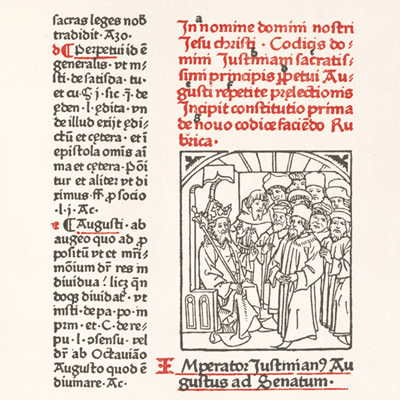 sacras leges nob̄
tradidit · Azo ·
d ¶ Perpetui id ē
generalis · vt mr̄-
sti · de satisda · tu-
et cu · ς j · sic q̄ · de
eden · l · edita · vn
de illud exijt edi-
ctū et cetera · et ī
epistola omīs aī
ma et cetera · Pōi
tur et aliter vt di
ximus ff · ꝓ socio
· l · j · Ac ·
e ¶ Augusti · ab
augeo quo ad ꝓ
positū vt et mr̄i-
moniū dr̄ res in
diuidua
doqꝫ diuidat᷑ · vt
insti · de pa · po · in
prm · et · C · de re-
pu · l · ɔsensu · vel
dr̄ ab Octauiāo
Augusto quod ē
diuinare · Ac ·
In a nomine domini nostri
Jesu christi · Codicis do-
mini Justiniani sacratis-
simi principis ꝑpetui Au-
gusti repetite prelectionis
Incipit constitutio prima
de nouo codice faciēdo Ru
brica ·
b
c
d
e
f
g
IMperator Justinianꝰ Au
gustus ad Senatum ·